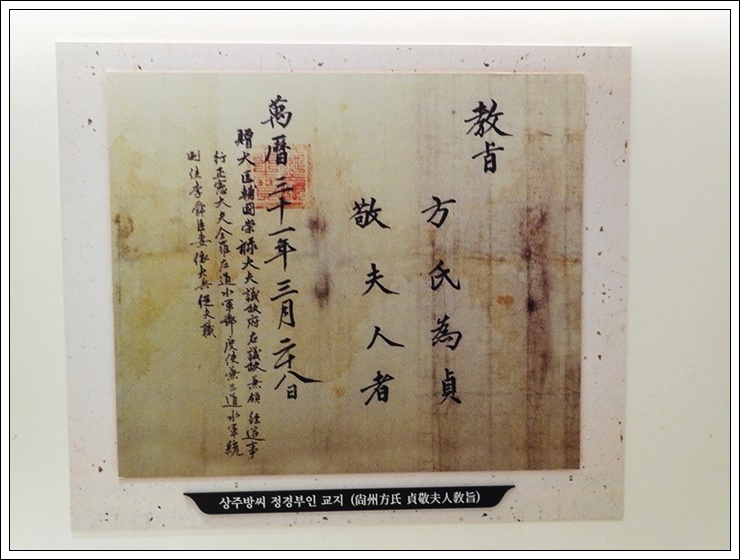 教旨
方氏為貞
敬夫人者
萬曆三十一年三月二十八日
贈大匡輔國崇祿大夫議政府右議政兼領 經筵事
行正憲大夫全羅左道水軍節度使兼三道水軍統
制使李舜臣妻依大典從夫職
상주방씨 정경부인 교지 (尙州方氏 貞敬夫人敎旨)